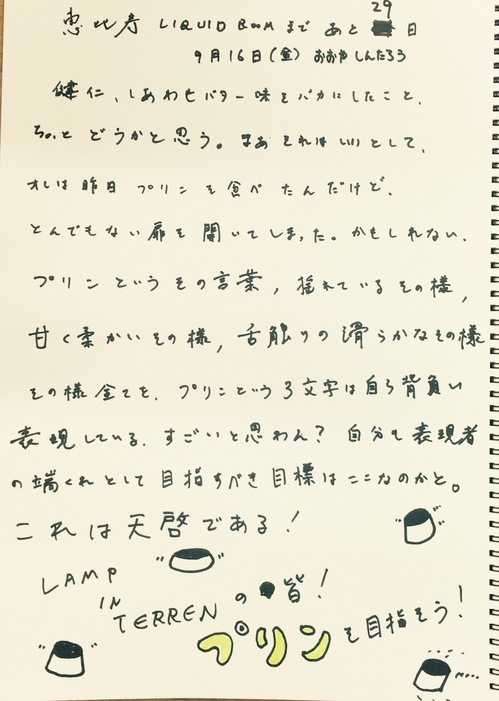 29
恵比寿 LIQUID ROOMまで あと 日
9月16日(金) おおや しんたろう
健仁、しあわせバター味をバカにしたこと、
ちょっと どうかと思う。まあ それは いいとして、
オレは昨日 プリンを食べたんだけど、
とんでもない扉を開いてしまった。かもしれない、
プリンというその言葉, 揺れているその様,
甘く柔かいその様, 舌触りの滑らかなその様
その様全てを、プリンという3文字は自ら背負い
表現している、すごいと思わん? 自分も表現者
の端くれとして目指すべき目標はここなのかと。
これは天啓である!
LAMP
IN
TERRENの 皆!
プリンを目指そう!